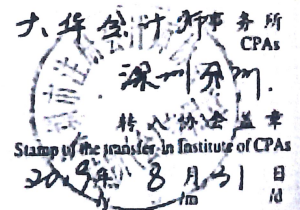 大华会计师事务所
CPAs
深圳分所
转入协会盖章
Stamp of the transfer-in Institute of CPAs
2009年 8月31日
/y /m /d